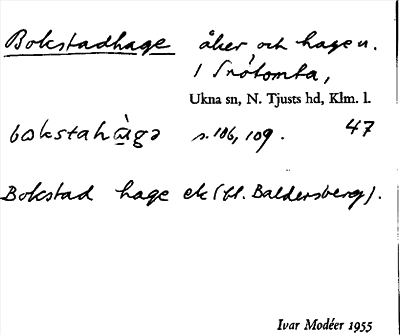 Bokstadhage åker och hage u.
1 Snótomta,
Ukna sn, N. Tjusts hd, Klm. l.
bokstahàgə s. 106, 109. 47
Bokstad hage ek (bl. Baldersberg).
Ivar Modéer 1955